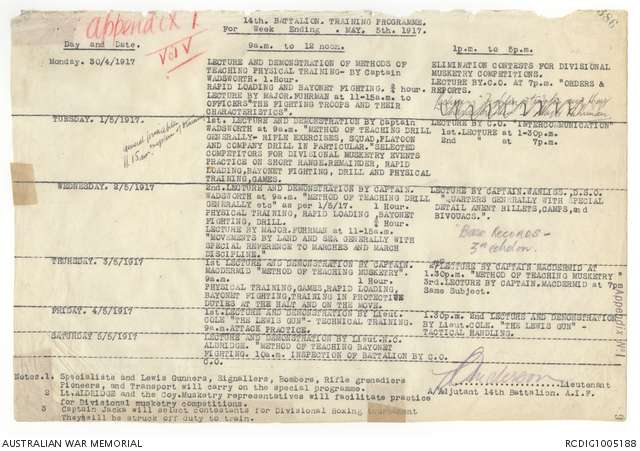 appendix 1
Vol V
386
14th. BATTALION. TRAINING PROGRAMME.
For Week Ending . MAY. 5th. 1917.
Day and Date.
9a.m. to 12 noon.
1p.m. to 5p.m.
Monday. 30/4/1917
LECTURE AND DEMONSTRATION OF METHODS OF
TEACHING PHYSICAL TRAINING- BY Captain
WADSWORTH. 1.Hour.
RAPID LOADING AND BAYONET FIGHTING. ¾ hour
LECTURE BY MAJOR.FUHRMAN at 11-15a.m. to
OFFICERS"THE FIGHTING TROOPS AND THEIR
CHARACTERISTICS".
ELIMINATION CONTESTS FOR DIVISIONAL
MUSKETRY COMPETITIONS.
LECTURE BY.C.O. AT 7p.m. "ORDERS &
REPORTS.
TUESDAY. 1/5/1917
11.15am
1st. LECTURE AND DEMONSTRATION BY Captain
WADSWORTH at 9a.m. "METHOD OF TEACHING DRILL
GENERALLY- RIFLE EXERCISES, SQUAD, PLATOON
AND COMPANY DRILL IN PARTICULAR."SELECTED
COMPETITORS FOR DIVISIONAL MUSKETRY EVENTS
PRACTICE ON SHORT RANGE.REMAINDER, RAPID
LOADING,BAYONET FIGHTING, DRILL AND PHYSICAL
TRAINING,GAMES.
LECTURE BY C.O. "INTERCOMMUNICATION"
1st.LECTURE at 1-30p.m.
2nd " at 7p.m.
WEDNESDAY. 2/5/1917
2nd.LECTURE AND DEMONSTRATION BY CAPTAIN.
WADSWORTH at 9a.m. "METHOD OF TEACHING DRILL
GENERALLY etc" as per 1/5/17. 1 Hour.
PHYSICAL TRAINING, RAPID LOADING ,BAYONET
FIGHTING, DRILL. Hour
LECTURE BY MAJOR.FUHRMAN at 11-15a.m.
"MOVEMENTS BY LAND AND SEA GENERALLY WITH
SPECIAL REFERENCE TO MARCHES AND MARCH
DISCIPLINE."
LECTURE BY CAPTAIN.WANLISS, D.S.O.
"QUARTERS GENERALLY WITH SPECIAL
DETAIL ANENT BILLETS,CAMPS,and
BIVOUACS."
Base Records -
3rd echelon.
THURSDAY. 3/5/1917
1st LECTURE AND DEMONSTRATION BY CAPTAIN.
MACDERMID "METHOD OF TEACHING MUSKETRY".
9a.m. 1 Hour.
PHYSICAL TRAINING,GAMES,RAPID LOADING,
BAYONET FIGHTING,TRAINING IN PROTECTIVE
DUTIES AT THE HALT AND ON THE MOVE.
LECTURE BY CAPTAIN MACDERMID AT
1.30p.m. "METHOD OF TEACHING MUSKETRY "
3rd.LECTURE BY CAPTAIN.MACDERMID at 7pm
Same Subject.
FRIDAY. 4/5/1917
1st.LECTURE AND DEMONSTRATION BY Lieut.
COLE "THE LEWIS GUN"- TECHNICAL TRAINING.
9a.m.ATTACK PRACTICE.
1.30pm. 2nd LECTURE AND DEMONSTRATION
BY Lieut.COLE. "THE LEWIS GUN" -
TACTICAL HANDLING.
SATURDAY 5/5/1917
LECTURE AND DEMONSTRATION BY Lieut.N.C.
ALDRIDGE. "METHOD OF TEACHING BAYONET
FIGHTING. 10a.m. INSPECTION OF BATTALION BY G.O.
C.O.
Notes.1. Specialists and Lewis Gunners, Signallers, Bombers, Rifle grenadiers
Pioneers, and Transport will carry on the special programme.
2 Lt.ALDRIDGE and the Coy.Musketry representatives will facilitate practice
for Divisional musketry competitions.
3 Captain Jacka will select contestants for Divisional Boxing tournament
They will be struck off duty to train.
Lieutenant
A/Adjutant 14th Battalion. A.I.F.
AUSTRALIAN WAR MEMORIAL
RCDIG1005188